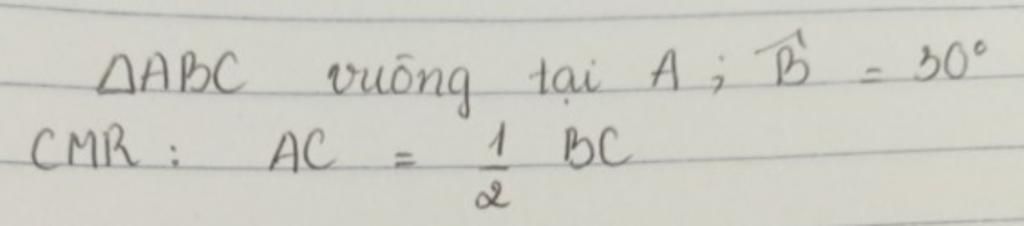 ΔABC vuông tại A ; B̂ = 30°
CMR : AC = 1/2 BC